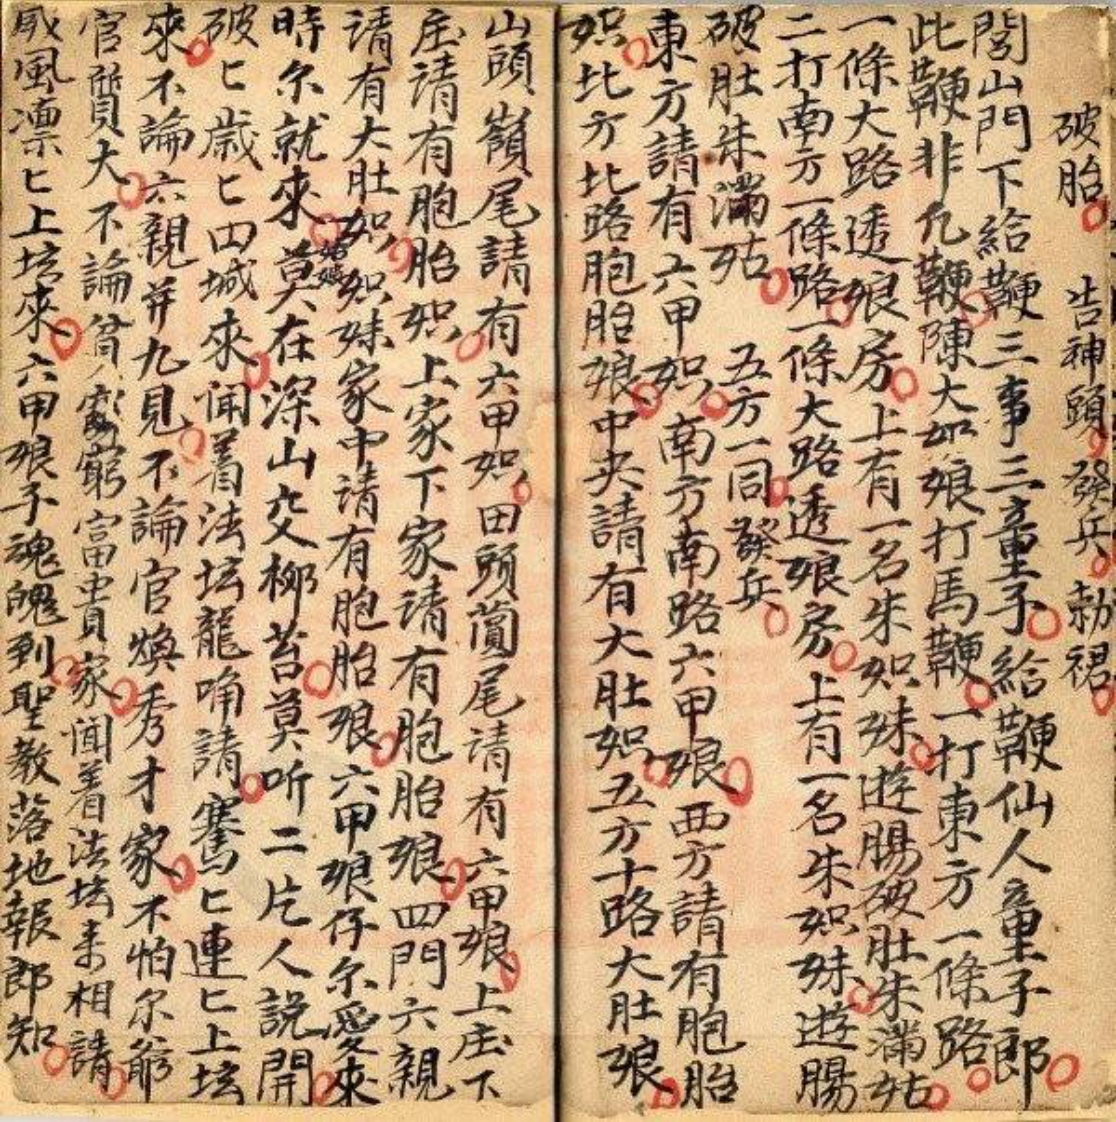 破胎 告神頭 發兵 勅裙
閭山門下給鞭三事三童子給鞭仙人童子郎
此鞭非凡鞭陳大奶娘打馬鞭一打東方一條路
一條大路透娘房上有一名朱妳妹遊腸破肚朱滿姑
二打南方一條路一條大路透娘房上有一名朱妳妹遊腸
破肚朱滿姑 五方一同發兵
東方請有六甲妳南方南路六甲娘西方請有胞胎
妳北方北路胞胎娘中央請有大肚妳五方十路大肚娘
山頭嶺尾請有六甲妳田頭薗尾请有六甲娘上庄下
庄請有胞胎妳上家下家请有胞胎娘四門六親
请有大肚妳妳妹家中请有胞胎娘六甲娘仔尔愛來
時尔就來莫在深山穴柳苔莫听二片人説開
破匕歲匕四城來闻着法坛龍角請騫匕連匕上坛
來不論六親并九見不論官煥秀才家不怕尔爺
官贊大不論貧窮富貴家闻着法坛来相請
威風凛匕上坛來六甲娘子魂魄到聖教落地報郎知